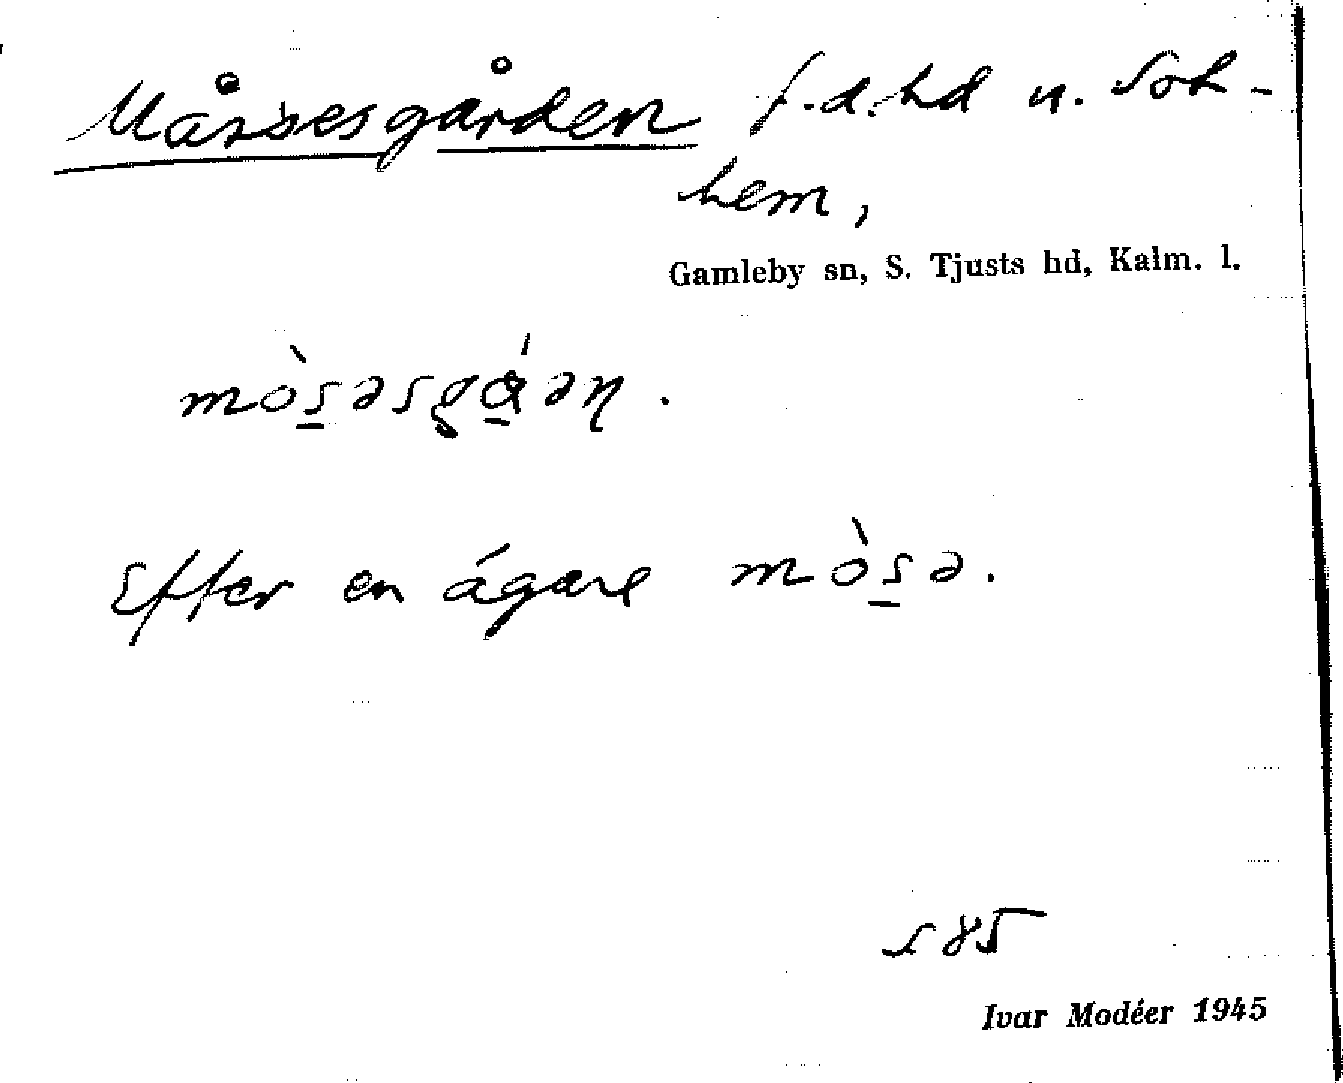 Mårsesgården f.d. hd u. Sol-
hem,
Gamleby sn, S. Tjusts hd, Kalm. l.
Efter en ägare
585
Ivar Modéer 1945